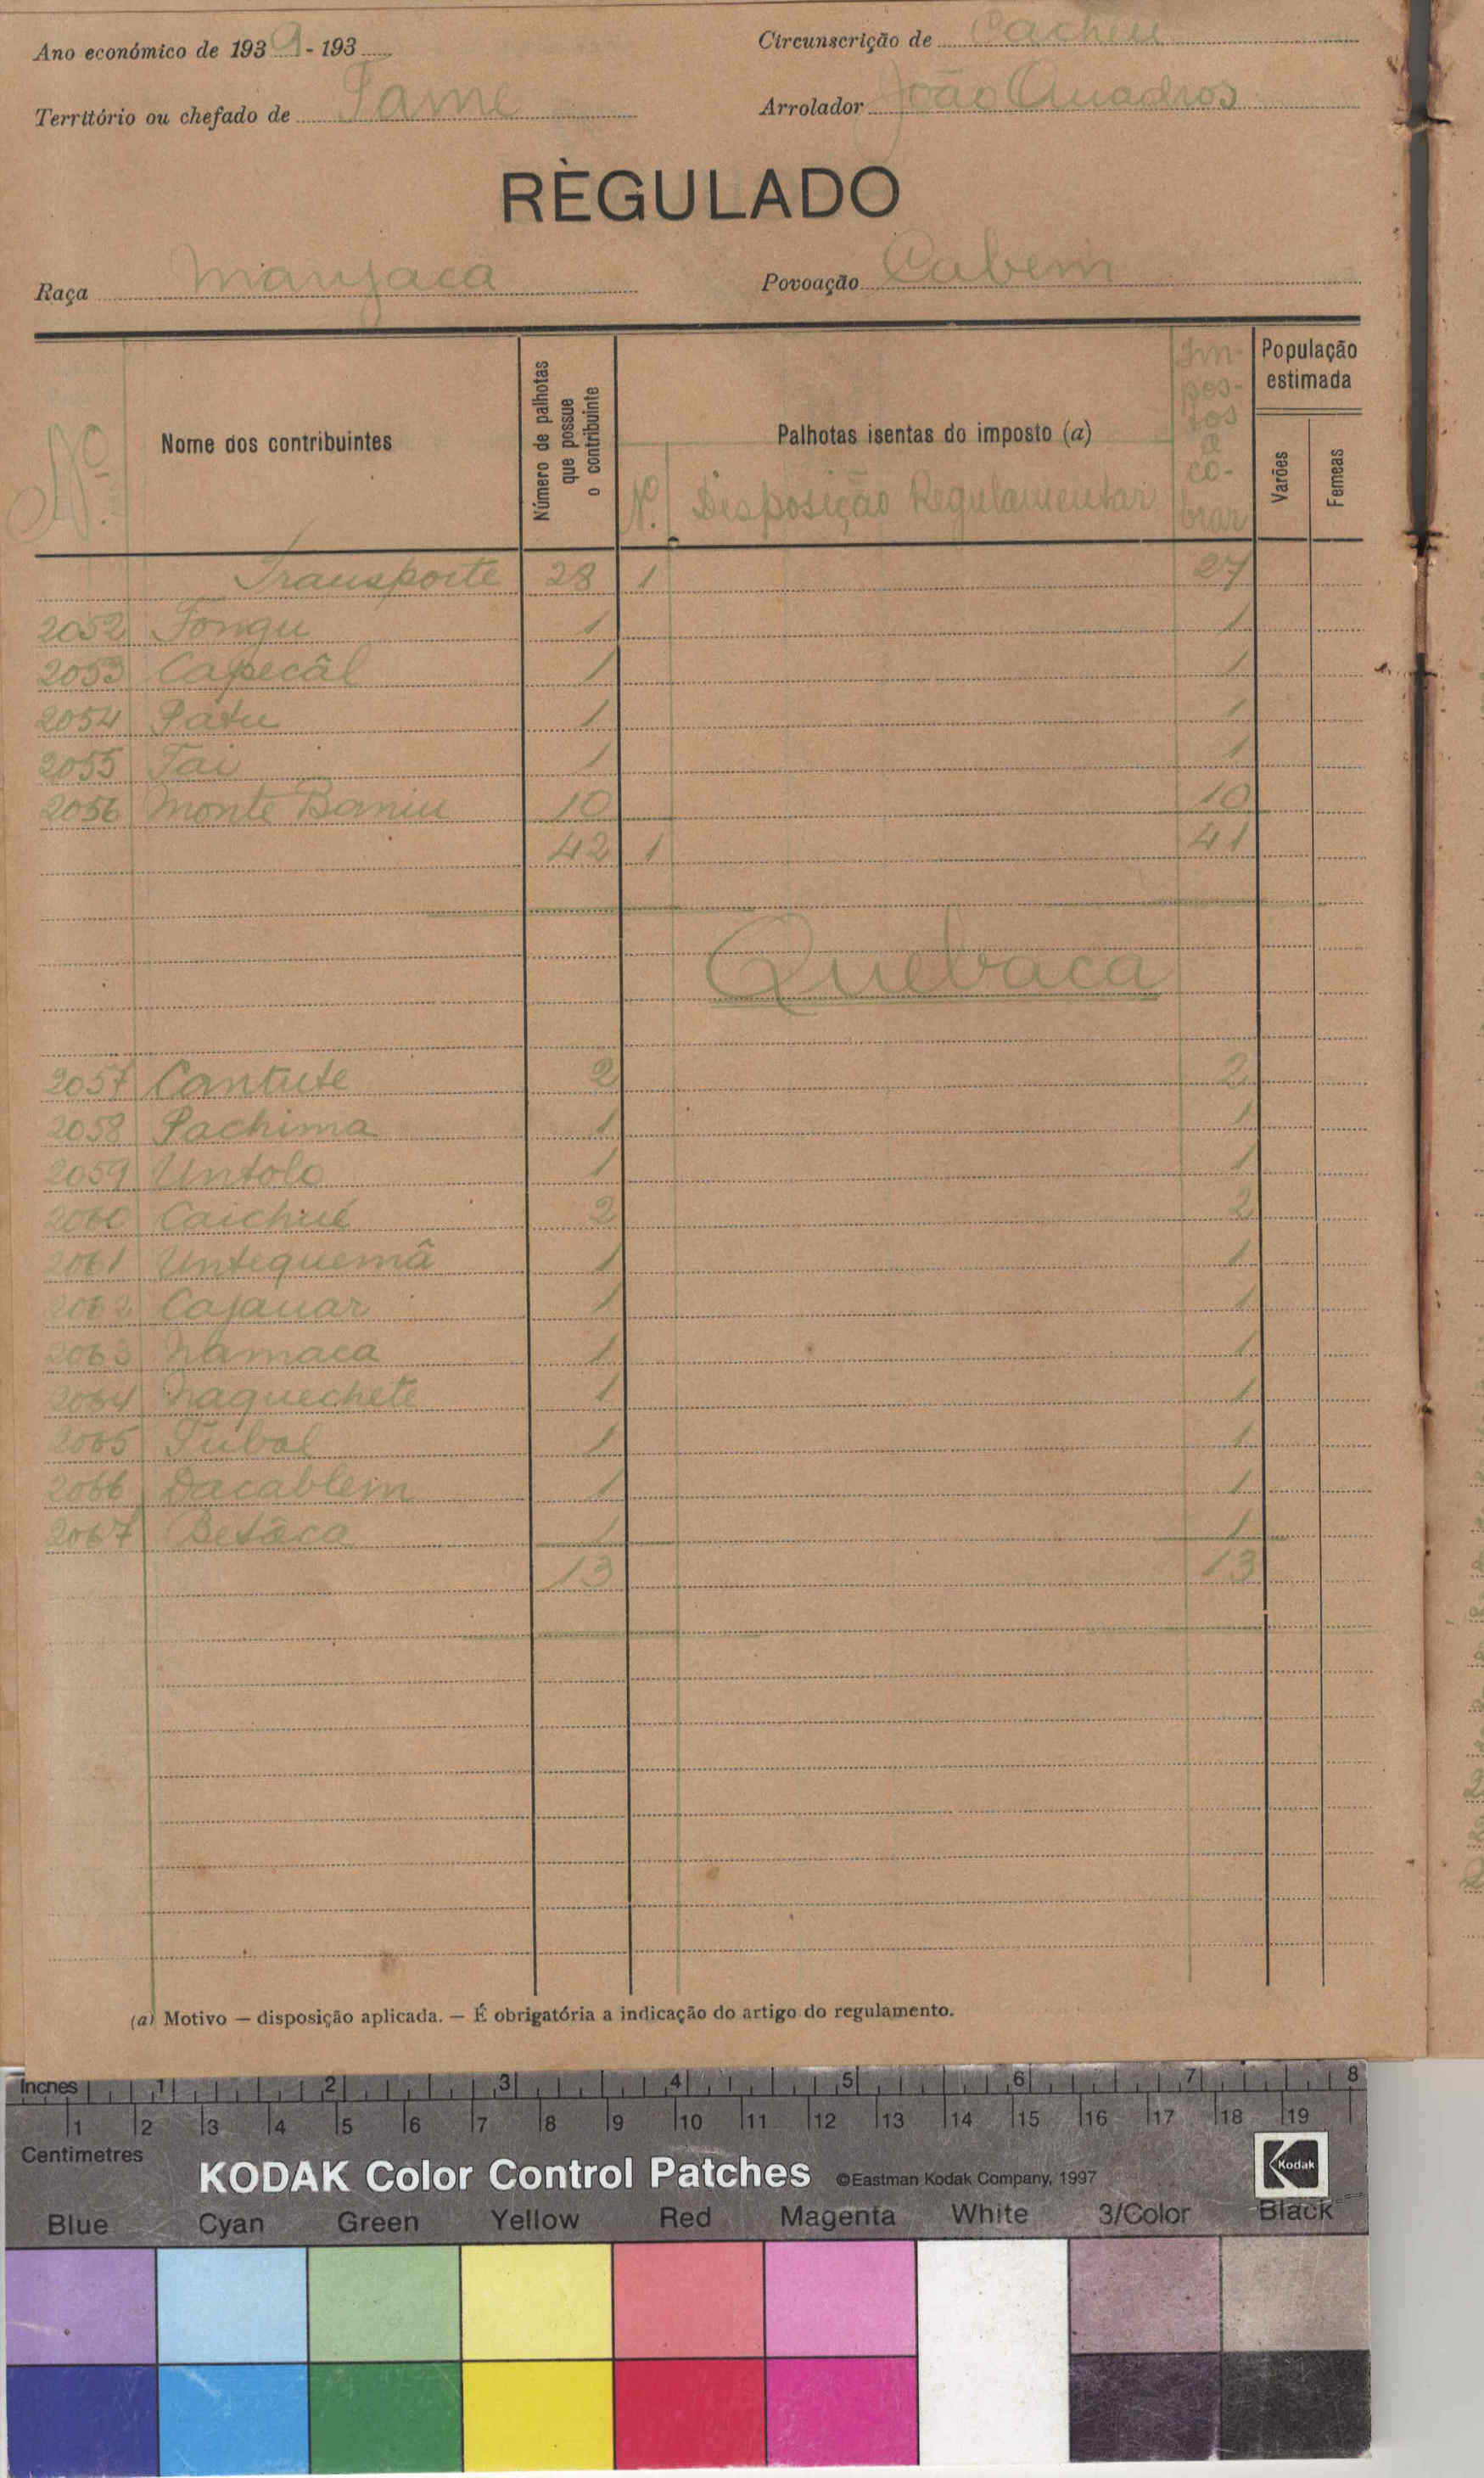 Ano económico de 1939 - 193
Circunscrição de Cacheu
Território ou chefado de Pame
Arrolador João Quadros
RÈGULADO
Raça Manjaca
Povoação Cabem
Nº
Nome dos contribuintes
Número de palhotas que possue o contribuinte
Palhotas isentas do imposto (a)
Nº. Disposição Regulamentar
Impostos a cobrar
População estimada
Varões
Femeas
Transporte 28 1 27
2052 Fongu 1 1
2053 Capecâl 1 1
2054 Patu 1 1
2055 Tai 1 1
2056 Monte Baniu 10 10
42 1 41
Quebaca
2057 Cantute 2 2
2058 Pachima 1 1
2059 Untolo 1 1
2060 Caichué 2 2
2061 Untequemâ 1 1
2062 Cajauar 1 1
2063 Namaca 1 1
2064 Naquechete 1 1
2065 Tubal 1 1
2066 Dacablem 1 1
2067 Betaca 1 1
13 13
(a) Motivo — disposição aplicada. — É obrigatória a indicação do artigo do regulamento.
Inches 1 2 3 4 5 6 7 8
1 2 3 4 5 6 7 8 9 10 11 12 13 14 15 16 17 18 19
Centimetres
KODAK Color Control Patches ©Eastman Kodak Company, 1997 Kodak
Blue Cyan Green Yellow Red Magenta White 3/Color Black